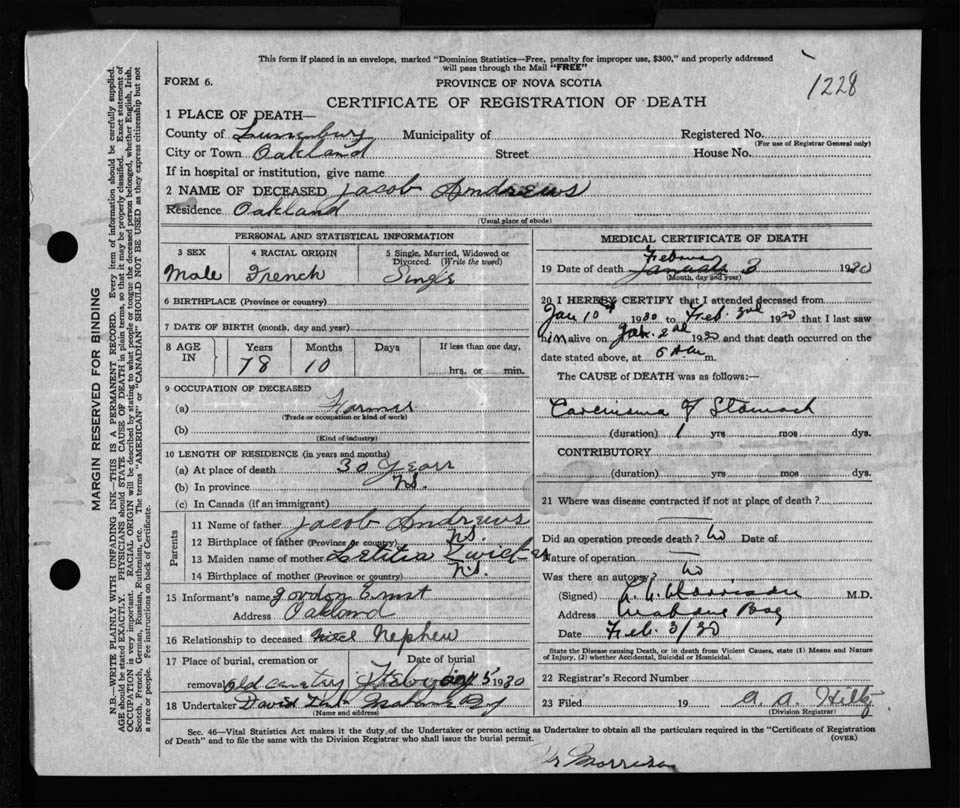 This form if placed in an envelope, marked "Dominion Statistics—Free, penalty for improper use, $300," and properly addressed
will pass through the Mail "FREE"
1228
FORM 6.
PROVINCE OF NOVA SCOTIA
CERTIFICATE OF REGISTRATION OF DEATH
1 PLACE OF DEATH—
County of Lunenburg Municipality of Registered No.
(For use of Registrar General only)
City or Town Oakland Street House No.
If in hospital or institution, give name
2 NAME OF DECEASED Jacob Andrews
Residence Oakland
(Usual place of abode)
PERSONAL AND STATISTICAL INFORMATION
3 SEX 4 RACIAL ORIGIN 5 Single, Married, Widowed or
Divorced. (Write the word)
Male French Single
6 BIRTHPLACE (Province or country)
7 DATE OF BIRTH (month, day and year)
8 AGE IN Years Months Days If less than one day,
78 10 hrs. or min.
9 OCCUPATION OF DECEASED
(a) Farmer
(Trade or occupation or kind of work)
(b)
(Kind of industry)
10 LENGTH OF RESIDENCE (in years and months)
(a) At place of death 30 years
(b) In province N.S.
(c) In Canada (if an immigrant)
Parents
11 Name of father Jacob Andrews
12 Birthplace of father (Province or country) N.S.
13 Maiden name of mother Letitia Zwicker
14 Birthplace of mother (Province or country) N.S.
15 Informant's name Gordon Ernst
Address Oakland
16 Relationship to deceased Nephew
17 Place of burial, cremation or Date of burial
removal Old cemetery Feby 5 1930
18 Undertaker David Mahone Bay
(Name and address)
MEDICAL CERTIFICATE OF DEATH
19 Date of death January February 3 1930
(Month, day and year)
20 I HEREBY CERTIFY that I attended deceased from
Jan 10 1930 to Feb. 3rd 1930 that I last saw
him alive on 2nd 1930 and that death occurred on the
date stated above, at 5 a.m.
The CAUSE of DEATH was as follows:—
Carcinoma of Stomach
(duration) 1 yrs mos dys.
CONTRIBUTORY
(duration) yrs mos dys.
21 Where was disease contracted if not at place of death?
Did an operation precede death? no Date of
Nature of operation
Was there an autopsy? no
(Signed) Morrison M.D.
Address Mahone Bay
Date Feb. 3/30
State the Disease causing Death, or in death from Violent Causes, state (1) Means and Nature
of Injury, (2) whether Accidental, Suicidal or Homicidal.
22 Registrar's Record Number
23 Filed 19
(Division Registrar)
Sec. 46—Vital Statistics Act makes it the duty of the Undertaker or person acting as Undertaker to obtain all the particulars required in the "Certificate of Registration
of Death" and to file the same with the Division Registrar who shall issue the burial permit.
(OVER)
Dr Morrison
MARGIN RESERVED FOR BINDING
N.B.—WRITE PLAINLY WITH UNFADING INK—THIS IS A PERMANENT RECORD. Every item of information should be carefully supplied.
AGE should be stated EXACTLY. PHYSICIANS should STATE CAUSE OF DEATH in plain terms, so that it may be properly classified. Exact statement of
OCCUPATION is very important. RACIAL ORIGIN will be described by stating to what people or tongue the deceased person belonged, whether English, Irish,
Scotch, French, German, Russian, Ruthenian, etc. The terms "AMERICAN" or "CANADIAN" SHOULD NOT BE USED as they express citizenship but not
a race or people. Fee instructions on back of Certificate.